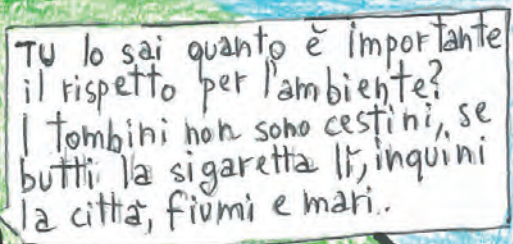 TU lo sai quanto è importante
il rispetto per l'ambiente?
I tombini non sono cestini, se
butti la sigaretta lì, inquini
la città, fiumi e mari.